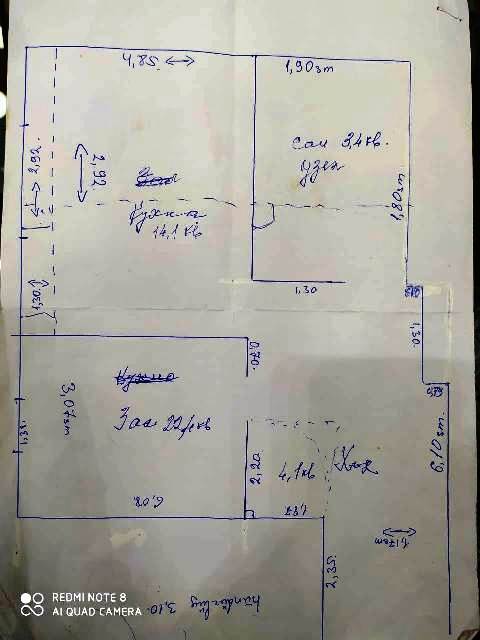 4,85.
1,90 зm
сан 3,4 кв.
узел
2,92.
2,92.
Зал
Кухня
14,1 кв
1,80 зm
1,30
1,30.
1,30.
0,70.
Кухня
Зал 22,1 кв
3,07 зm
1,35.
6,08.
2,20
4,1 кв
Ход
1,87
6,10 зm.
1,17 зm
2,35.
hündürlüy
3,10.
REDMI NOTE 8
AI QUAD CAMERA